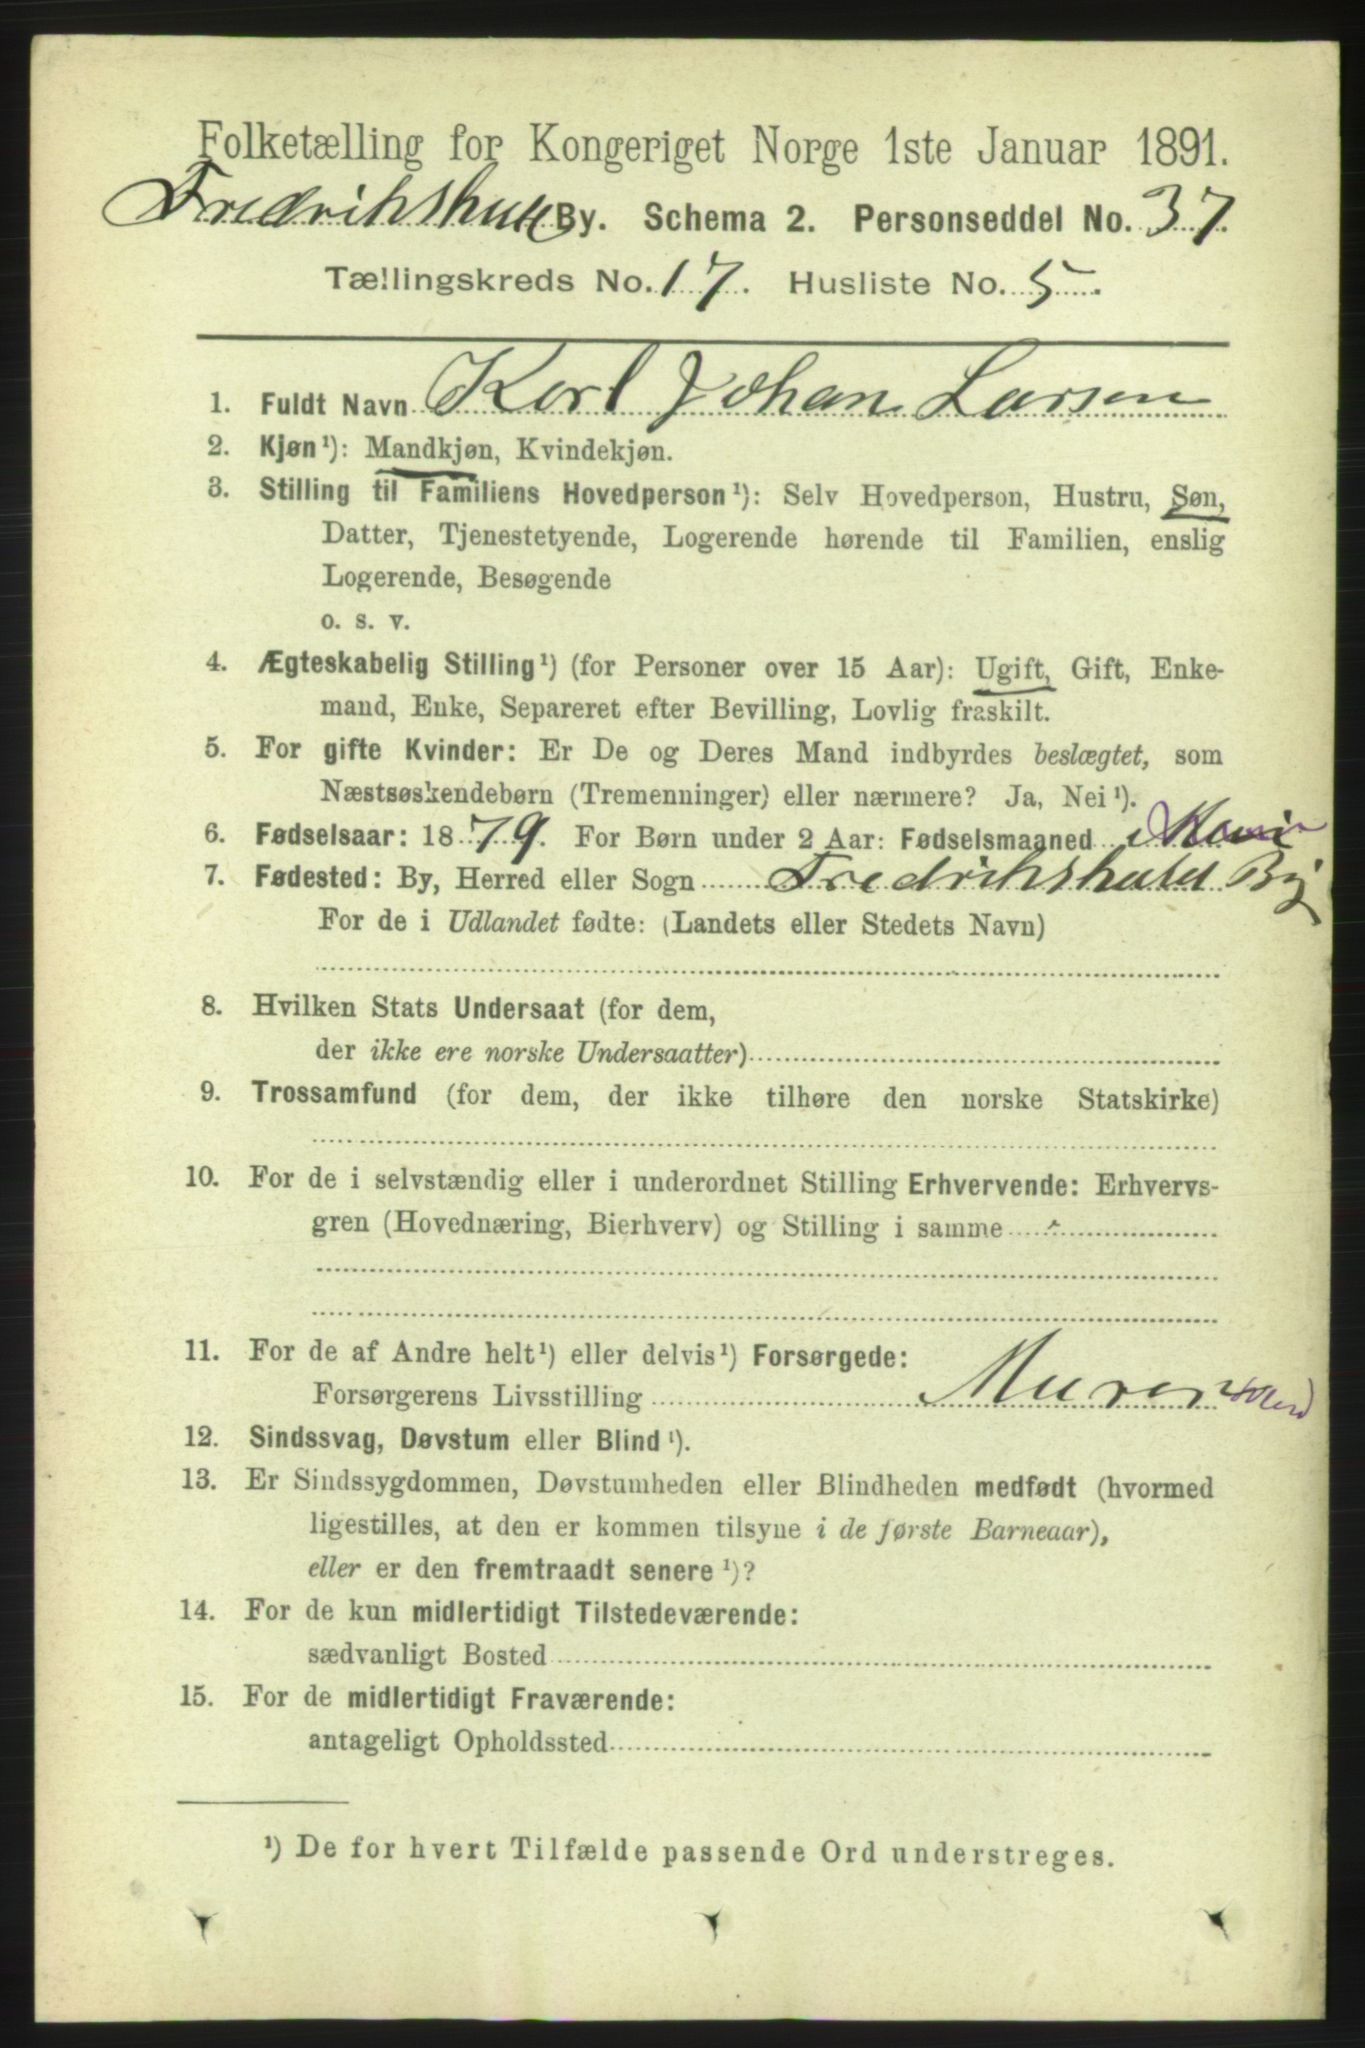 Folketælling for Kongeriget Norge 1ste Januar 1891.
Fredrikshald By. Schema 2. Personseddel No. 37.
Tællingskreds No. 17. Husliste No. 5.
1. Fuldt Navn Karl Johan Larsen
2. Kjøn¹): Mandkjøn, Kvindekjøn.
3. Stilling til Familiens Hovedperson¹): Selv Hovedperson, Hustru, Søn,
Datter, Tjenestetyende, Logerende hørende til Familien, enslig
Logerende, Besøgende
o. s. v.
4. Ægteskabelig Stilling¹) (for Personer over 15 Aar): Ugift, Gift, Enke-
mand, Enke, Separeret efter Bevilling, Lovlig fraskilt.
5. For gifte Kvinder: Er De og Deres Mand indbyrdes beslægtet, som
Næstsøskendebørn (Tremenninger) eller nærmere? Ja, Nei¹).
6. Fødselsaar: 1879. For Børn under 2 Aar: Fødselsmaaned
7. Fødested: By, Herred eller Sogn Fredrikshald By
For de i Udlandet fødte: (Landets eller Stedets Navn)
8. Hvilken Stats Undersaat (for dem,
der ikke ere norske Undersaatter)
9. Trossamfund (for dem, der ikke tilhøre den norske Statskirke)
10. For de i selvstændig eller i underordnet Stilling Erhvervende: Erhvervs-
gren (Hovednæring, Bierhverv) og Stilling i samme
11. For de af Andre helt¹) eller delvis¹) Forsørgede:
Forsørgerens Livsstilling Murer
12. Sindssvag, Døvstum eller Blind¹).
13. Er Sindssygdommen, Døvstumheden eller Blindheden medfødt (hvormed
ligestilles, at den er kommen tilsyne i de første Barneaar),
eller er den fremtraadt senere¹)?
14. For de kun midlertidigt Tilstedeværende:
sædvanligt Bosted
15. For de midlertidigt Fraværende:
antageligt Opholdssted
¹) De for hvert Tilfælde passende Ord understreges.